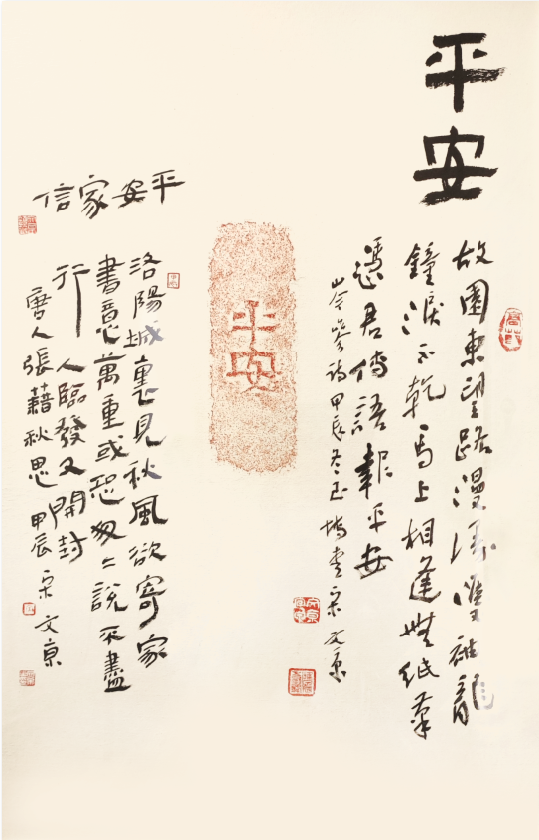 平安
故園東望路漫漫雙袖龍
鐘淚不乾馬上相逢無紙筆
憑君傳語報平安
岑參詩甲辰冬 宋文京
平安
平安家信
洛陽城裏見秋風欲寄家
書意萬重或恐匆々說不盡
行人臨發又開封
唐人張藉秋思甲辰宋文京